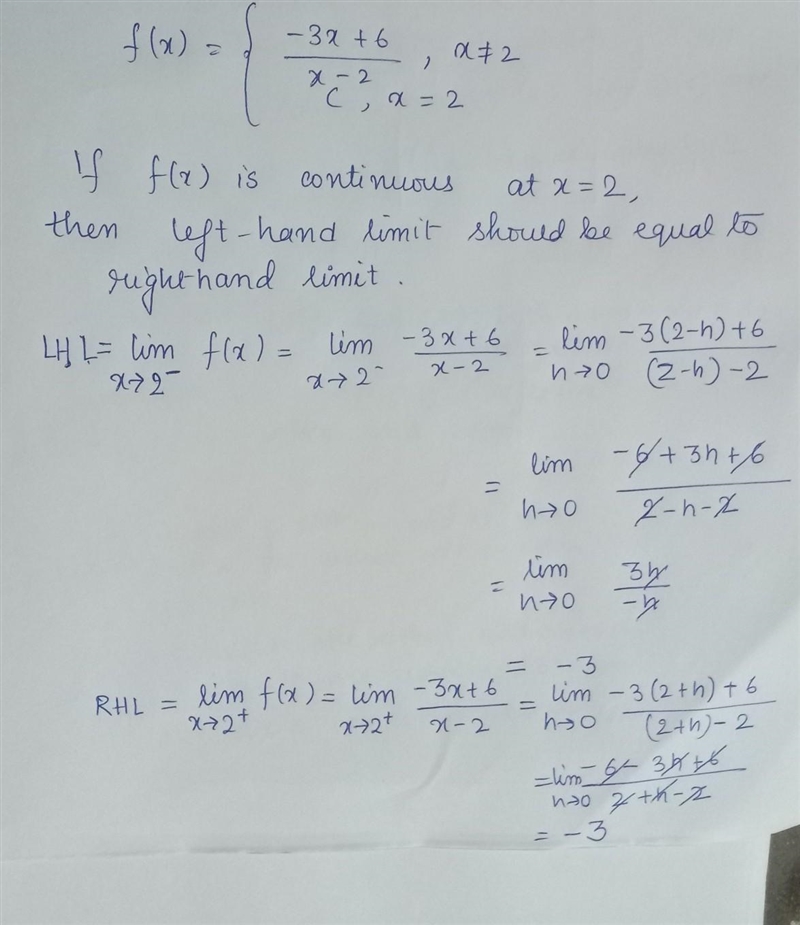 f(x) = { (-3x + 6)/(x - 2) , x ≠ 2
C , x = 2
If f(x) is continuous at x = 2,
then left-hand limit should be equal to
right-hand limit.
LHL = lim x→2⁻ f(x) = lim x→2⁻ (-3x + 6)/(x - 2) = lim h→0 (-3(2-h) + 6)/((2-h) - 2)
= lim h→0 (-6 + 3h + 6)/(2 - h - 2)
= lim h→0 3h/-h
= -3
RHL = lim x→2⁺ f(x) = lim x→2⁺ (-3x + 6)/(x - 2) = lim h→0 (-3(2+h) + 6)/((2+h) - 2)
= lim h→0 (-6 - 3h + 6)/(2 + h - 2)
= -3